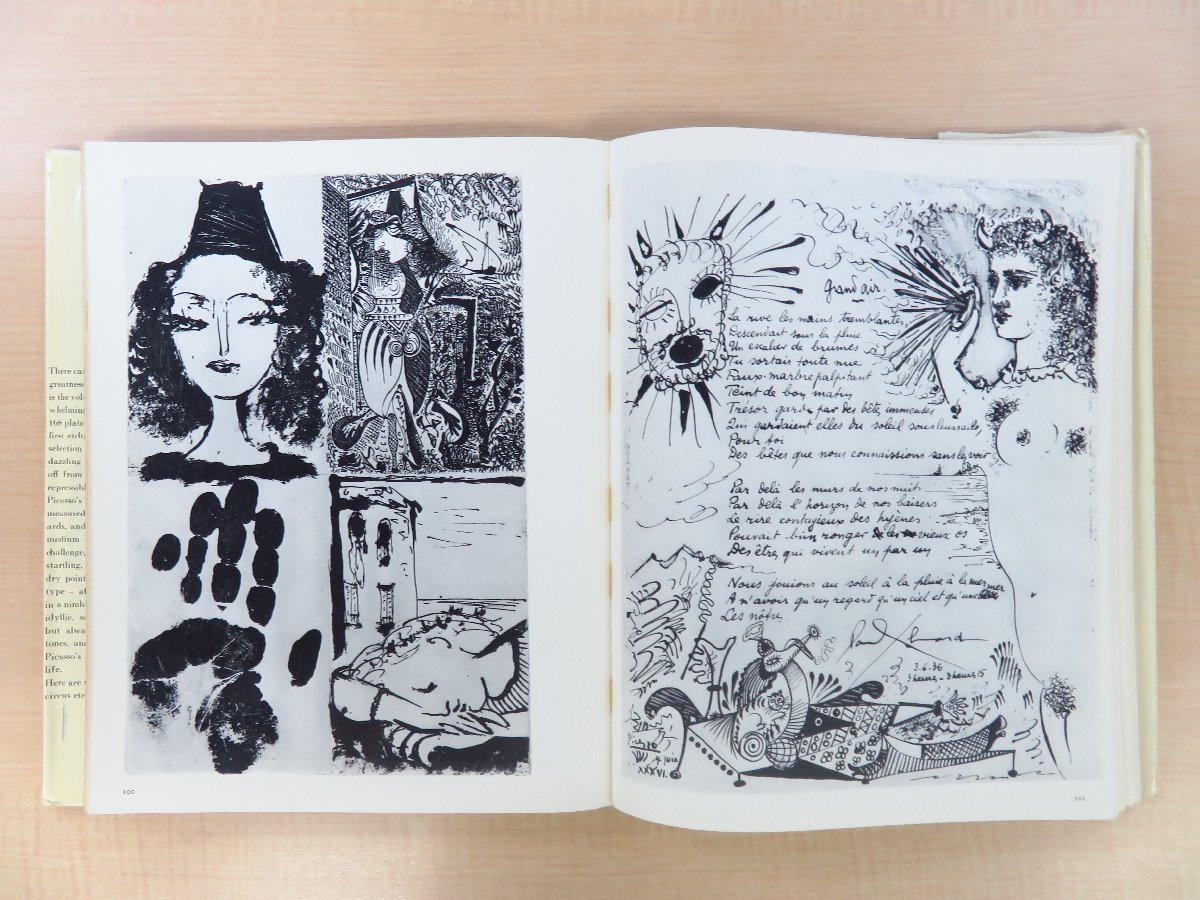 There ca
greatness
is the vol
whelming
168 plate
first etch
selection
dazzling
off from
repressib
Picasso's
measured
ards, and
medium
challenge,
startling,
dry point
type – al
in a nimb
idyllic, s
but alwa
tones, and
Picasso's
life.
Here are
circus etc
100
Grand air
La rive les mains tremblantes,
Descendait sous la pluie
Un escalier de brumes
Tu sortais toute nue
Faux marbre palpitant
Teint de bon matin
Trésor gardé par des bêtes immenses
Qui gardaient elles du soleil sous leurs ailes,
Pour toi
Des bêtes que nous connaissions sans les voir
Par delà les murs de nos nuits
Par delà l'horizon de nos baisers
Le rire contagieux des hyènes
Pouvait bien ronger les vieux os
Des être qui vivent un par un
Nous jouions au soleil à la pluie à la mer
A n'avoir qu'un regard qu'un ciel et qu'une
Les nôtres
Paul Eluard
3-6-36
3 heures - 3 heures 15
Picasso
4 juin
XXXVI.
101